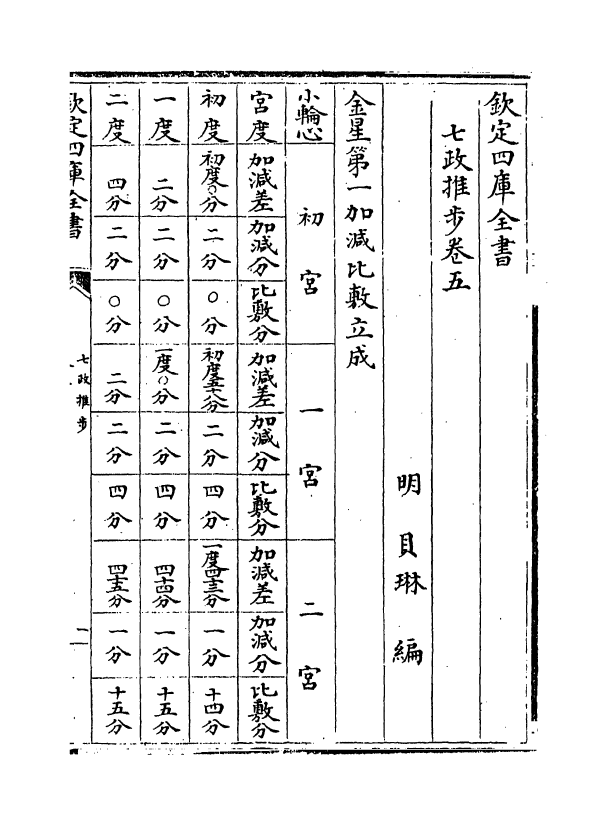 欽定四庫全書
七政推步卷五
明 貝琳 編
金星第一加減比敷立成
小輪心 初宮 一宮 二宮
宮度 加減差 加減分 比敷分 加減差 加減分 比敷分 加減差 加減分 比敷分
初度 初度〇分 二分 〇分 初度五十八分 二分 四分 一度四十三分 一分 十四分
一度 二分 二分 〇分 一度〇分 二分 四分 四十四分 一分 十五分
二度 四分 二分 〇分 二分 二分 四分 四十五分 一分 十五分
欽定四庫全書
七政推步